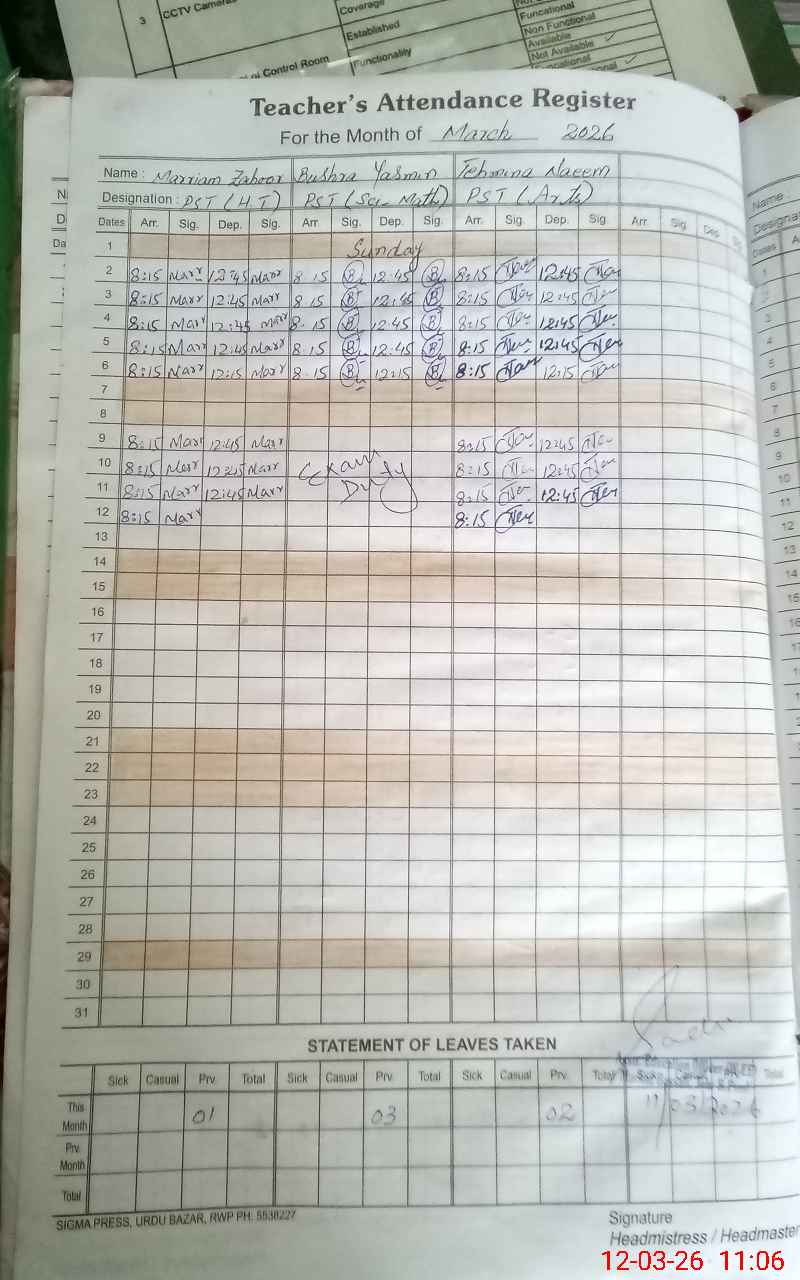 3 CCTV Cameras
Coverage
Established
Functionality
Control Room
Funcational
Non Functional
Available
Not Available ✓
Teacher's Attendance Register
For the Month of March 2026
Name : Marriam Zahoor Bushra Yasmin Tehmina Naeem
Designation : PST (H T) PST (Sci-Math) PST (Arts)
Dates Arr. Sig. Dep. Sig. Arr. Sig. Dep. Sig. Arr. Sig. Dep. Sig. Arr. Sig. Dep. Sig.
1 Sunday
2 8:15 Marr 12:45 Marr 8:15 B 12:45 B 8:15 12:45
3 8:15 Marr 12:45 Marr 8:15 B 12:45 B 8:15 12:45
4 8:15 Marr 12:45 Marr 8:15 B 12:45 B 8:15 12:45
5 8:15 Marr 12:45 Marr 8:15 B 12:45 B 8:15 12:45
6 8:15 Marr 12:15 Marr 8:15 B 12:15 B 8:15 12:15
7
8
9 8:15 Marr 12:45 Marr 8:15 12:45
10 8:15 Marr 12:45 Marr Exam 8:15 12:45
11 8:15 Marr 12:45 Marr Duty 8:15 12:45
12 8:15 Marr 8:15
13
14
15
16
17
18
19
20
21
22
23
24
25
26
27
28
29
30
31
STATEMENT OF LEAVES TAKEN
Sick Casual Prv. Total Sick Casual Prv. Total Sick Casual Prv. Total Sick Total
This Month 01 03 02 11/03/2026
Prv. Month
Total
SIGMA PRESS, URDU BAZAR, RWP PH: 5530227
Signature
Headmistress / Headmaster
12-03-26 11:06